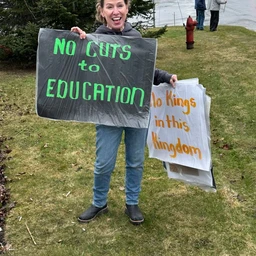 NO CUTS
to
EDUCATION
No Kings
in this
Kingdom